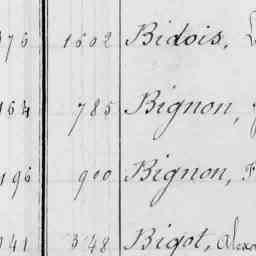 376 1602 Bidois,
164 785 Bignon,
196 900 Bignon, F
141 348 Bigot, Alex